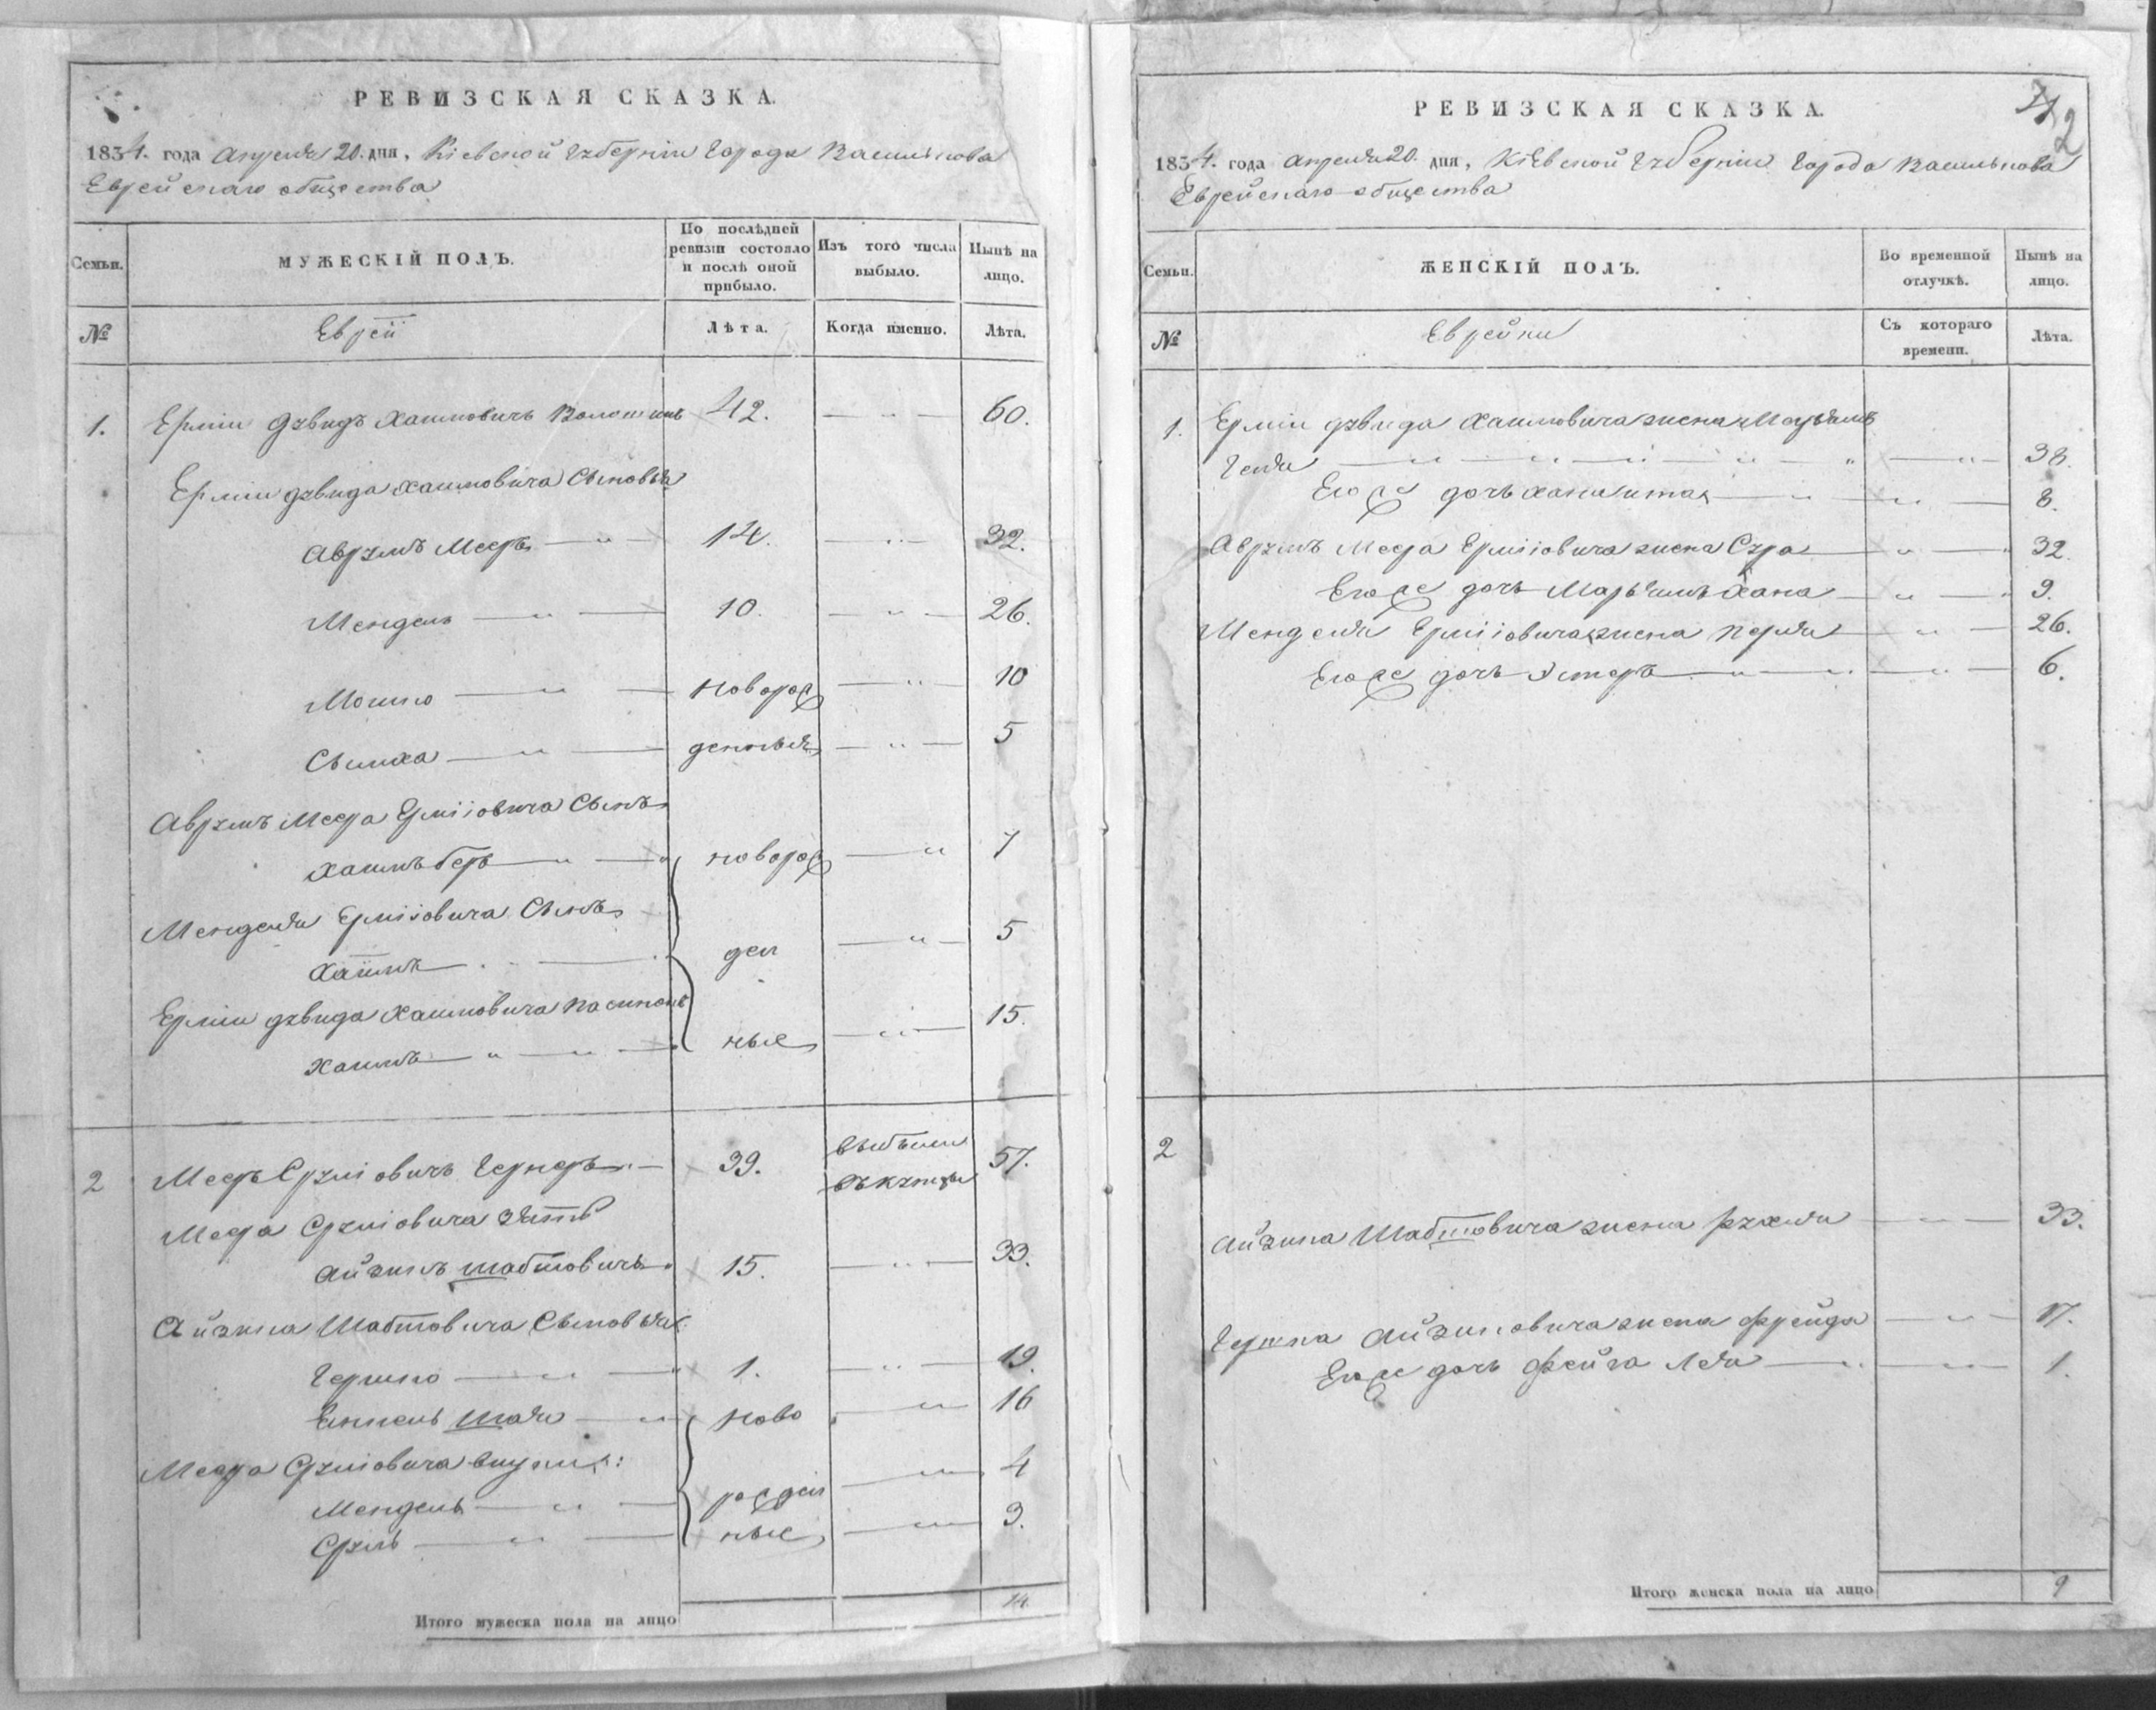 РЕВИЗСКАЯ СКАЗКА.
1834. года Апреля 20. дня, Кіевской губерніи города Василькова
Еврейскаго общества
Семьи.
МУЖЕСКІЙ ПОЛЪ.
По послѣдней ревизіи состояло и послѣ оной прибыло.
Изъ того числа выбыло.
Нынѣ на лицо.
№
Еврей
Лѣта.
Когда именно.
Лѣта.
1. Ерши Дувидъ Хаимовичъ 42. — " — 60.
Ерши Дувида Хаимовича Сыновья
Аврумъ Меерь — " — 14. — " — 32.
Мендель — " — 10. — " — 26.
Мошко — " — новорож — " — 10
Сымха — " — денныя — " — 5
Аврумъ Меера Ершіовича Сынъ
Хаимъ Беръ — " — новорож — " 7
Менделя Ершіовича Сынъ
Хаимъ — ден — " — 5
Ерши Дувида Хаимовича пасынокъ
Хаимъ — " — " — ные — " — 15.
2 Меерь Сруліовичъ 39. выбылъ 57.
Меера Сруліовича зять
Айзикъ Шабтовичъ 15. — " — 33.
Айзика Шабтовича Сыновья:
Гершко — " — 1. — " — 19.
Шая — " ново — " — 16
Меера Сруліовича внуки:
Мендель — " — рожден — " — 4
Сруль — " — ные — " — 3.
Итого мужеска пола на лицо
14
РЕВИЗСКАЯ СКАЗКА.
2
1834. года Апреля 20. дня, Кіевской губерніи города Василькова
Еврейскаго общества
Семьи.
ЖЕНСКІЙ ПОЛЪ.
Во временной отлучкѣ.
Нынѣ на лицо.
№
Еврейки
Съ котораго времени.
Лѣта.
1. Ерши Дувида Хаимовича жена
Геля — " — " — " — " — 38.
Его же дочь — " — " — 8.
Аврумъ Меера Ершіовича жена Сура — " — 32.
Его же дочь Марьямъ Хана — " — 9.
Менделя Ершіовича жена Перля — " — 26.
Его же дочь Эстеръ — " — " — 6.
2
Айзика Шабтовича жена Рухля — " — 33.
Гершка Айзиковича жена Фрейда — " — 17.
Его же дочь Фейга Лея — " — " — 1.
Итого женска пола на лицо
9